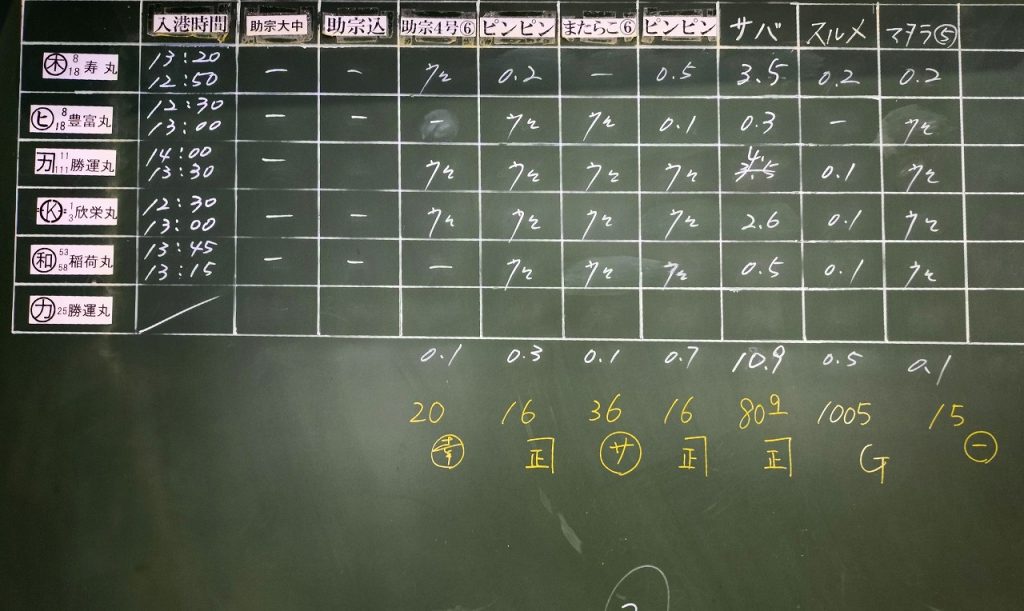 入港時間 助宗大中 助宗込 助宗4号⑥ ピンピン またらこ⑥ ピンピン サバ スルメ マダラ⑤
木 8 18 寿丸 13:20 12:50 — — クセ 0.2 — 0.5 3.5 0.2 0.2
ヒ 8 18 豊富丸 12:30 13:00 — — — クセ クセ 0.1 0.3 — クセ
カ 11 111 勝運丸 14:00 13:30 — クセ クセ クセ クセ 4. 0.1 クセ
K 1 3 欣栄丸 12:30 13:00 — — クセ クセ クセ クセ 2.6 0.1 クセ
和 53 58 稲荷丸 13:45 13:15 — — — クセ クセ クセ 0.5 0.1 クセ
カ 25 勝運丸
0.1 0.3 0.1 0.7 10.9 0.5 0.1
20 16 36 16 809 1005 15
幸 正 サ 正 正 G 一